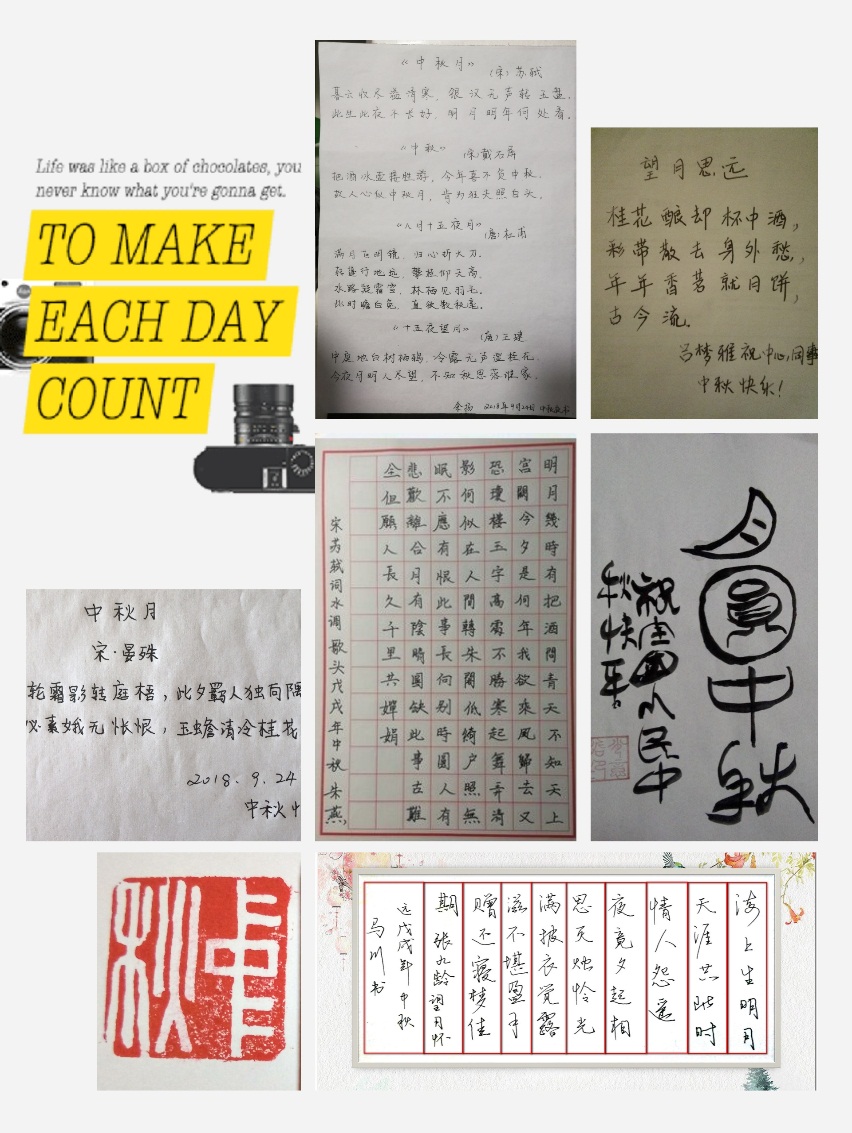 Life was like a box of chocolates, you
never know what you're gonna get.
TO MAKE
EACH DAY
COUNT
《中秋月》
(宋)苏轼
暮云收尽溢清寒，银汉无声转玉盘。
此生此夜不长好，明月明年何处看。
《中秋》
(宋)戴石屏
把酒冰壶接胜游，今年喜不负中秋。
故人心似中秋月，肯为狂夫照白头。
《八月十五夜月》
(唐)杜甫
满月飞明镜，归心折大刀。
转蓬行地远，攀桂仰天高。
水路疑霜雪，林栖见羽毛。
此时瞻白兔，直欲数秋毫。
《十五夜望月》
(唐)王建
中庭地白树栖鸦，冷露无声湿桂花。
今夜月明人尽望，不知秋思落谁家。
2018年9月24日
望月思远
桂花酿却杯中酒，
彩带散去身外愁，
年年香茗就月饼，
古今流.
吕梦雅祝中心同事
中秋快乐!
中秋月
宋·晏殊
轮霜影转庭梧，此夕羁人独向隅
必素娥无怅恨，玉蟾清冷桂花
2018.9.24
中秋
明月幾時有把酒問青天不知天上
宮闕今夕是何年我欲來風歸去又
恐瓊樓玉宇高處不勝寒起舞弄清
影何似在人間轉朱閣低綺户照無
眠不應有恨此事長向别時圓人有
悲歡離合月有陰晴圓缺此事古難
全但願人長久千里共嬋娟
宋苏轼词水调歌头戊戌年中秋朱燕
月圓中秋
祝全國人民中
秋快乐
中秋
海上生明月
天涯共此时
情人怨遥
夜竟夕起相
思灭烛怜光
满披衣觉露
滋不堪盈手
赠还寝梦佳
期 张九龄望月怀
远戊戌年中秋
马川书